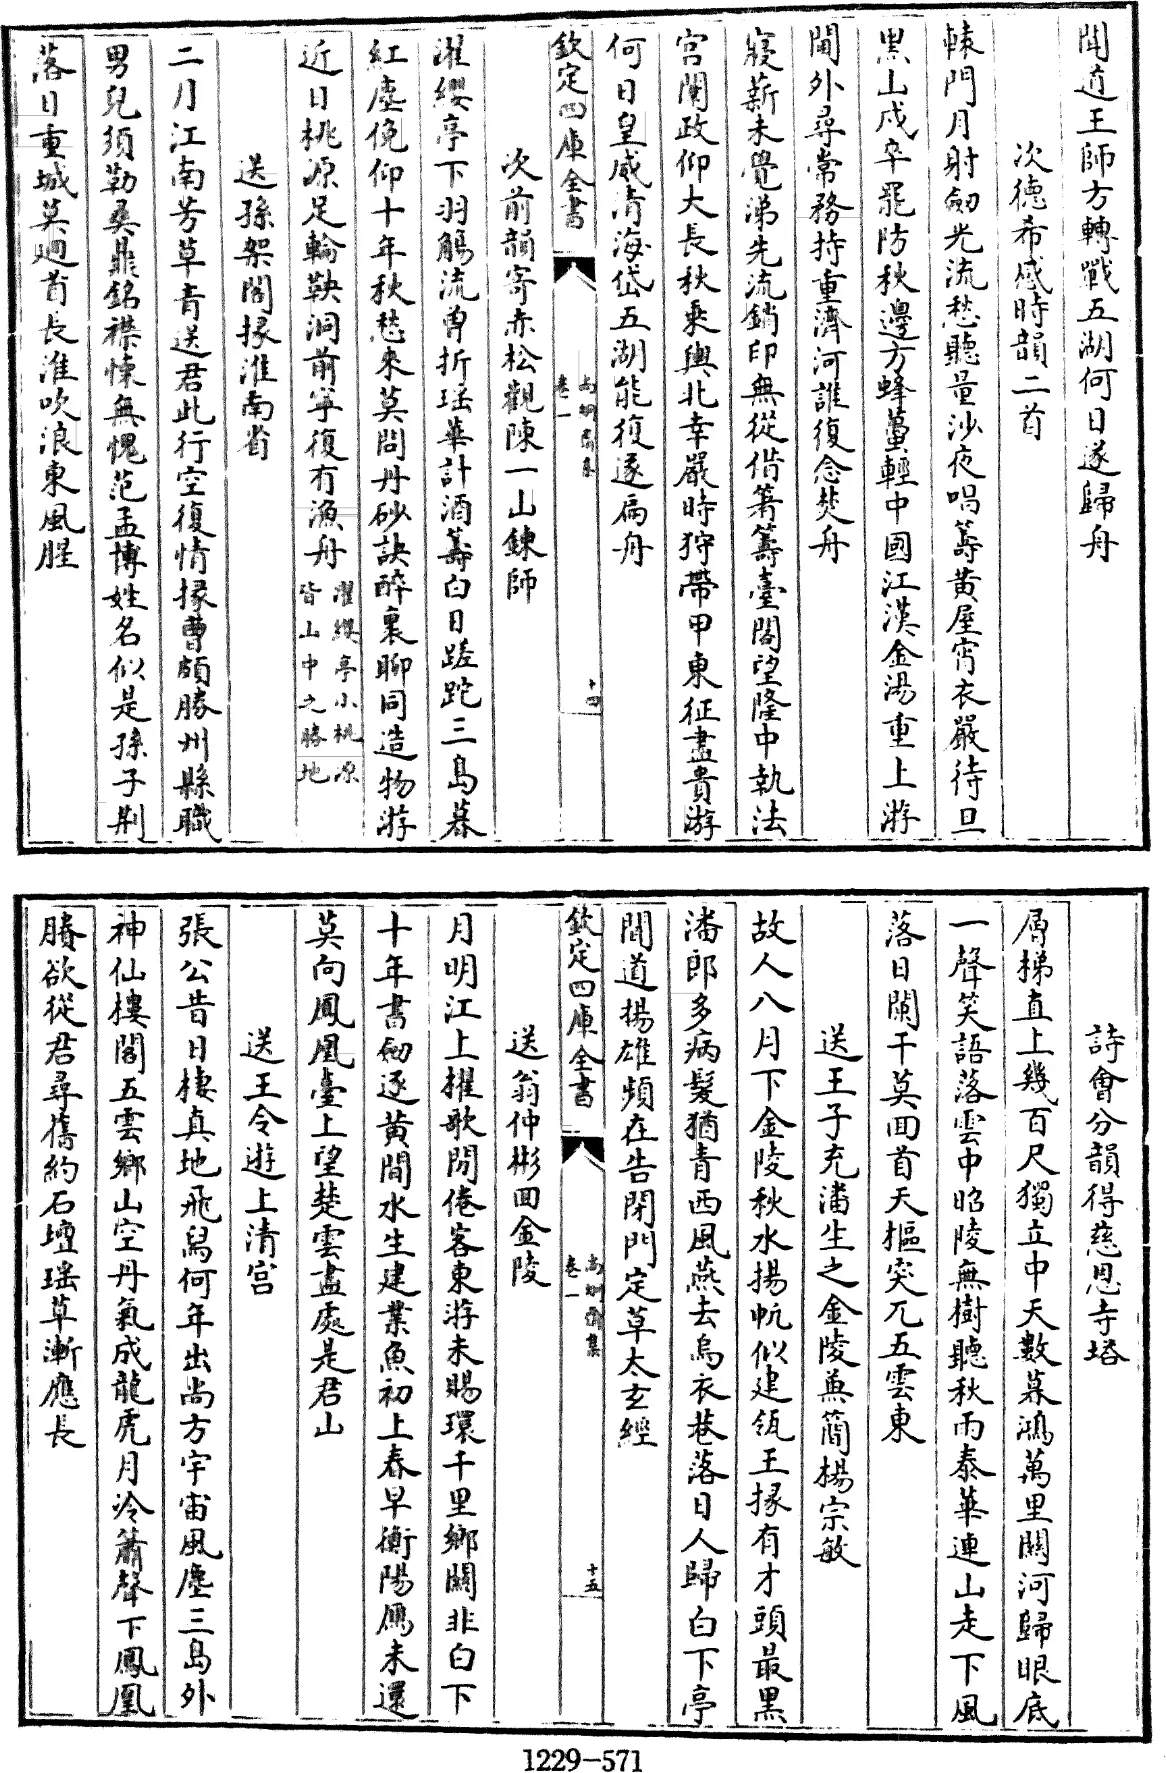 聞道王師方轉戰五湖何日遂歸舟
次德希感時韻二首
轅門月射劒光流愁聽量沙夜唱籌黃屋宵衣嚴待旦
黑山戍卒罷防秋邊方蜂蠆輕中國江漢金湯重上游
閫外尋常務持重濟河誰復念焚舟
寢薪未覺涕先流銷印無從借箸籌臺閣望隆中執法
宮闈政仰大長秋乘輿北幸嚴時狩帶甲東征盡貴游
何日皇威清海岱五湖能復逐扁舟
欽定四庫全書
尚絅齋集
卷一
十四
次前韻寄赤松觀陳一山鍊師
濯纓亭下羽觴流曾折瑶華計酒籌白日蹉跎三島暮
紅塵俛仰十年秋愁來莫問丹砂訣醉裏聊同造物游
近日桃源足輪鞅洞前寧復有漁舟濯纓亭小桃源
皆山中之勝地
送孫架閣掾淮南省
二月江南芳草青送君此行空復情掾曹頗勝州縣職
男兒須勒奏鼎銘襟懷無愧范孟博姓名似是孫子荆
落日重城莫廻首長淮吹浪東風腥
詩會分韻得慈恩寺塔
層梯直上幾百尺獨立中天數暮鴻萬里關河歸眼底
一聲笑語落雲中昭陵無樹聽秋雨泰華連山走下風
落日闌干莫回首天樞突兀五雲東
送王子充潘生之金陵兼簡楊宗敏
故人八月下金陵秋水揚帆似建瓴王掾有才頭最黑
潘郎多病髮猶青西風燕去烏衣巷落日人歸白下亭
聞道揚雄頻在告閉門定草太玄經
欽定四庫全書
尚絅齋集
卷一
十五
送翁仲彬回金陵
月明江上櫂歌閒倦客東游未賜環千里鄉關非白下
十年書劒逐黃間水生建業魚初上春早衡陽鴈未還
莫向鳳凰臺上望楚雲盡處是君山
送王令遊上清宮
張公昔日棲真地飛舄何年出尚方宇宙風塵三島外
神仙樓閣五雲鄉山空丹氣成龍虎月冷簫聲下鳳凰
賸欲從君尋舊約石壇瑶草漸應長
1229-571